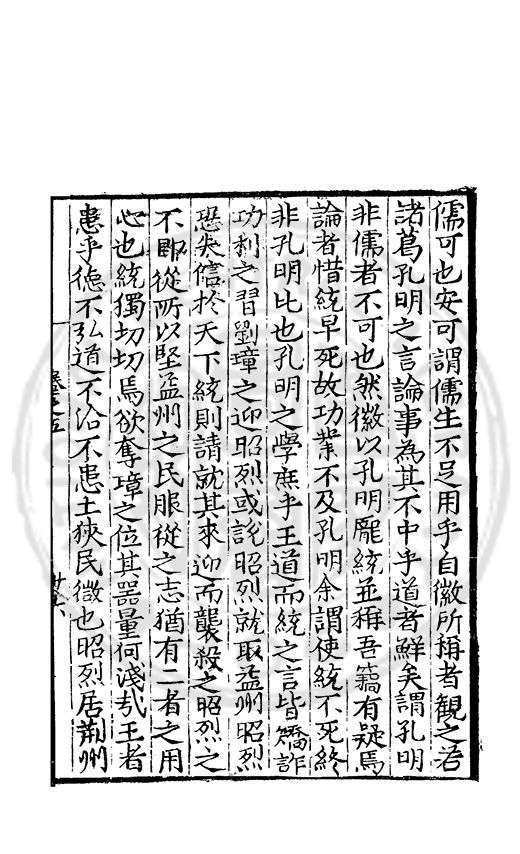 儒可也安可謂儒生不足用乎自徽所稱者觀之若
諸葛孔明之言論事為其不中乎道者鮮矣謂孔明
非儒者不可也然徽以孔明龐統並稱吾竊有疑焉
論者惜統早死故功業不及孔明余謂使統不死終
非孔明比也孔明之學庶乎王道而統之言皆矯詐
功利之習劉璋之迎昭烈或說昭烈就取益州昭烈
恐失信於天下統則請就其來迎而襲殺之昭烈之
不即從所以堅益州之民服從之志猶有二者之用
心也統獨切切焉欲奪璋之位其器量何淺哉王者
患乎德不弘道不洽不患土狹民微也昭烈居荆州
卷之五
廿六